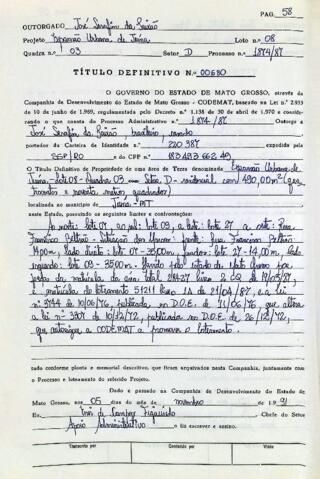 PAG. 58
OUTORGADO José Serafim da Paixão
Projeto Expansão Urbana de Juina Lote n.o 08
Quadra n.o 03 Setor D Processo n.o 1874/87
TÍTULO DEFINITIVO N.o 00680
O GOVERNO DO ESTADO DE MATO GROSSO, através da
Companhia de Desenvolvimento do Estado de Mato Grosso - CODEMAT, baseado na Lei n.o 2.933
de 10 de junho de 1.969, regulamentada pelo Decreto n.o 1.138 de 30 de abril de 1.970 e consideran-
do o que consta do Processo Administrativo n.o 1874/87 Outorga a
José Serafim da Paixão brasileiro, casado
portador da Carteira de Identidade n.o 220387 expedida pela
SSP/RO e do CPF n.o 183.493.662.49
O Título Definitivo de Propriedade de uma área de Terra denominada Expansão Urbana de
Juina - Lote 08 - Quadra 03 - Setor D - residencial com 490,00m² (qua-
trocentos e noventa metros quadrados)
localizada no município de Juina - MT
neste Estado, possuindo os seguintes limites e confrontações:
ao norte: lote 07, ao sul: lote 09, a leste: lote 27 a oeste: Rua
Francisco Beltrão - frente: Rua Francisco Beltrão
14,00m, lado direito: lote 07 - 35,00m, fundos: lote 27 - 14,00m, lado
esquerdo: lote 09 - 35,00m.
e matrícula do loteamento 51211 livro 1A de 21/04/87, e a lei
nº 3744 de 10/06/76, publicada no D.O.E. de 11/06/76 que altera
a lei nº 3307 de 10/12/72, publicada no D.O.E. de 26/12/72,
que autoriza a CODEMAT a promover o loteamento.
tudo conforme planta e memorial descritivo, que ficam arquivados nesta Companhia, juntamente com
o Processo e loteamento do referido Projeto.
Dado e passado na Companhia de Desenvolvimento do Estado de
Mato Grosso, aos 05 dias do mês de novembro de 1.991
Eu, de Campos Figueiredo Chefe do Setor
Apoio Administrativo o fiz escrever e assino.
Transcrito por Conferido por Visto